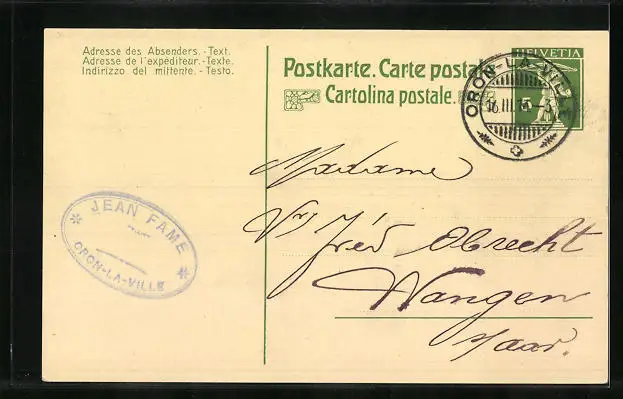 Adresse des Absenders. - Text.
Adresse de l'expéditeur. - Texte.
Indirizzo del mittente. - Testo.
Postkarte. Carte postale.
Cartolina postale.
HELVETIA
ORON-LA-VILLE
16.III.
JEAN FAME
ORON-LA-VILLE
Madame
Vve Fréd Obrecht
Wangen